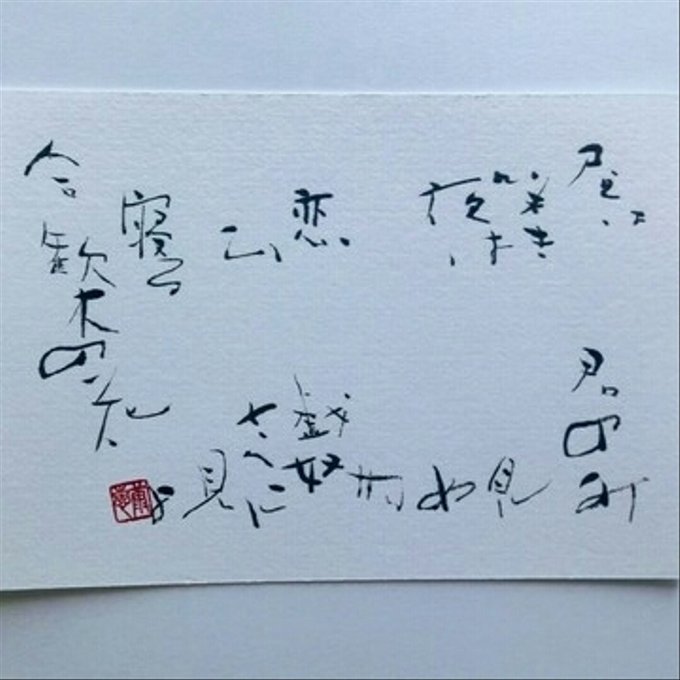 昼は
咲き
夜は
恋
ひ
寝る
合歓木の花
君のみ
見めや
戯奴
さへに
見よ